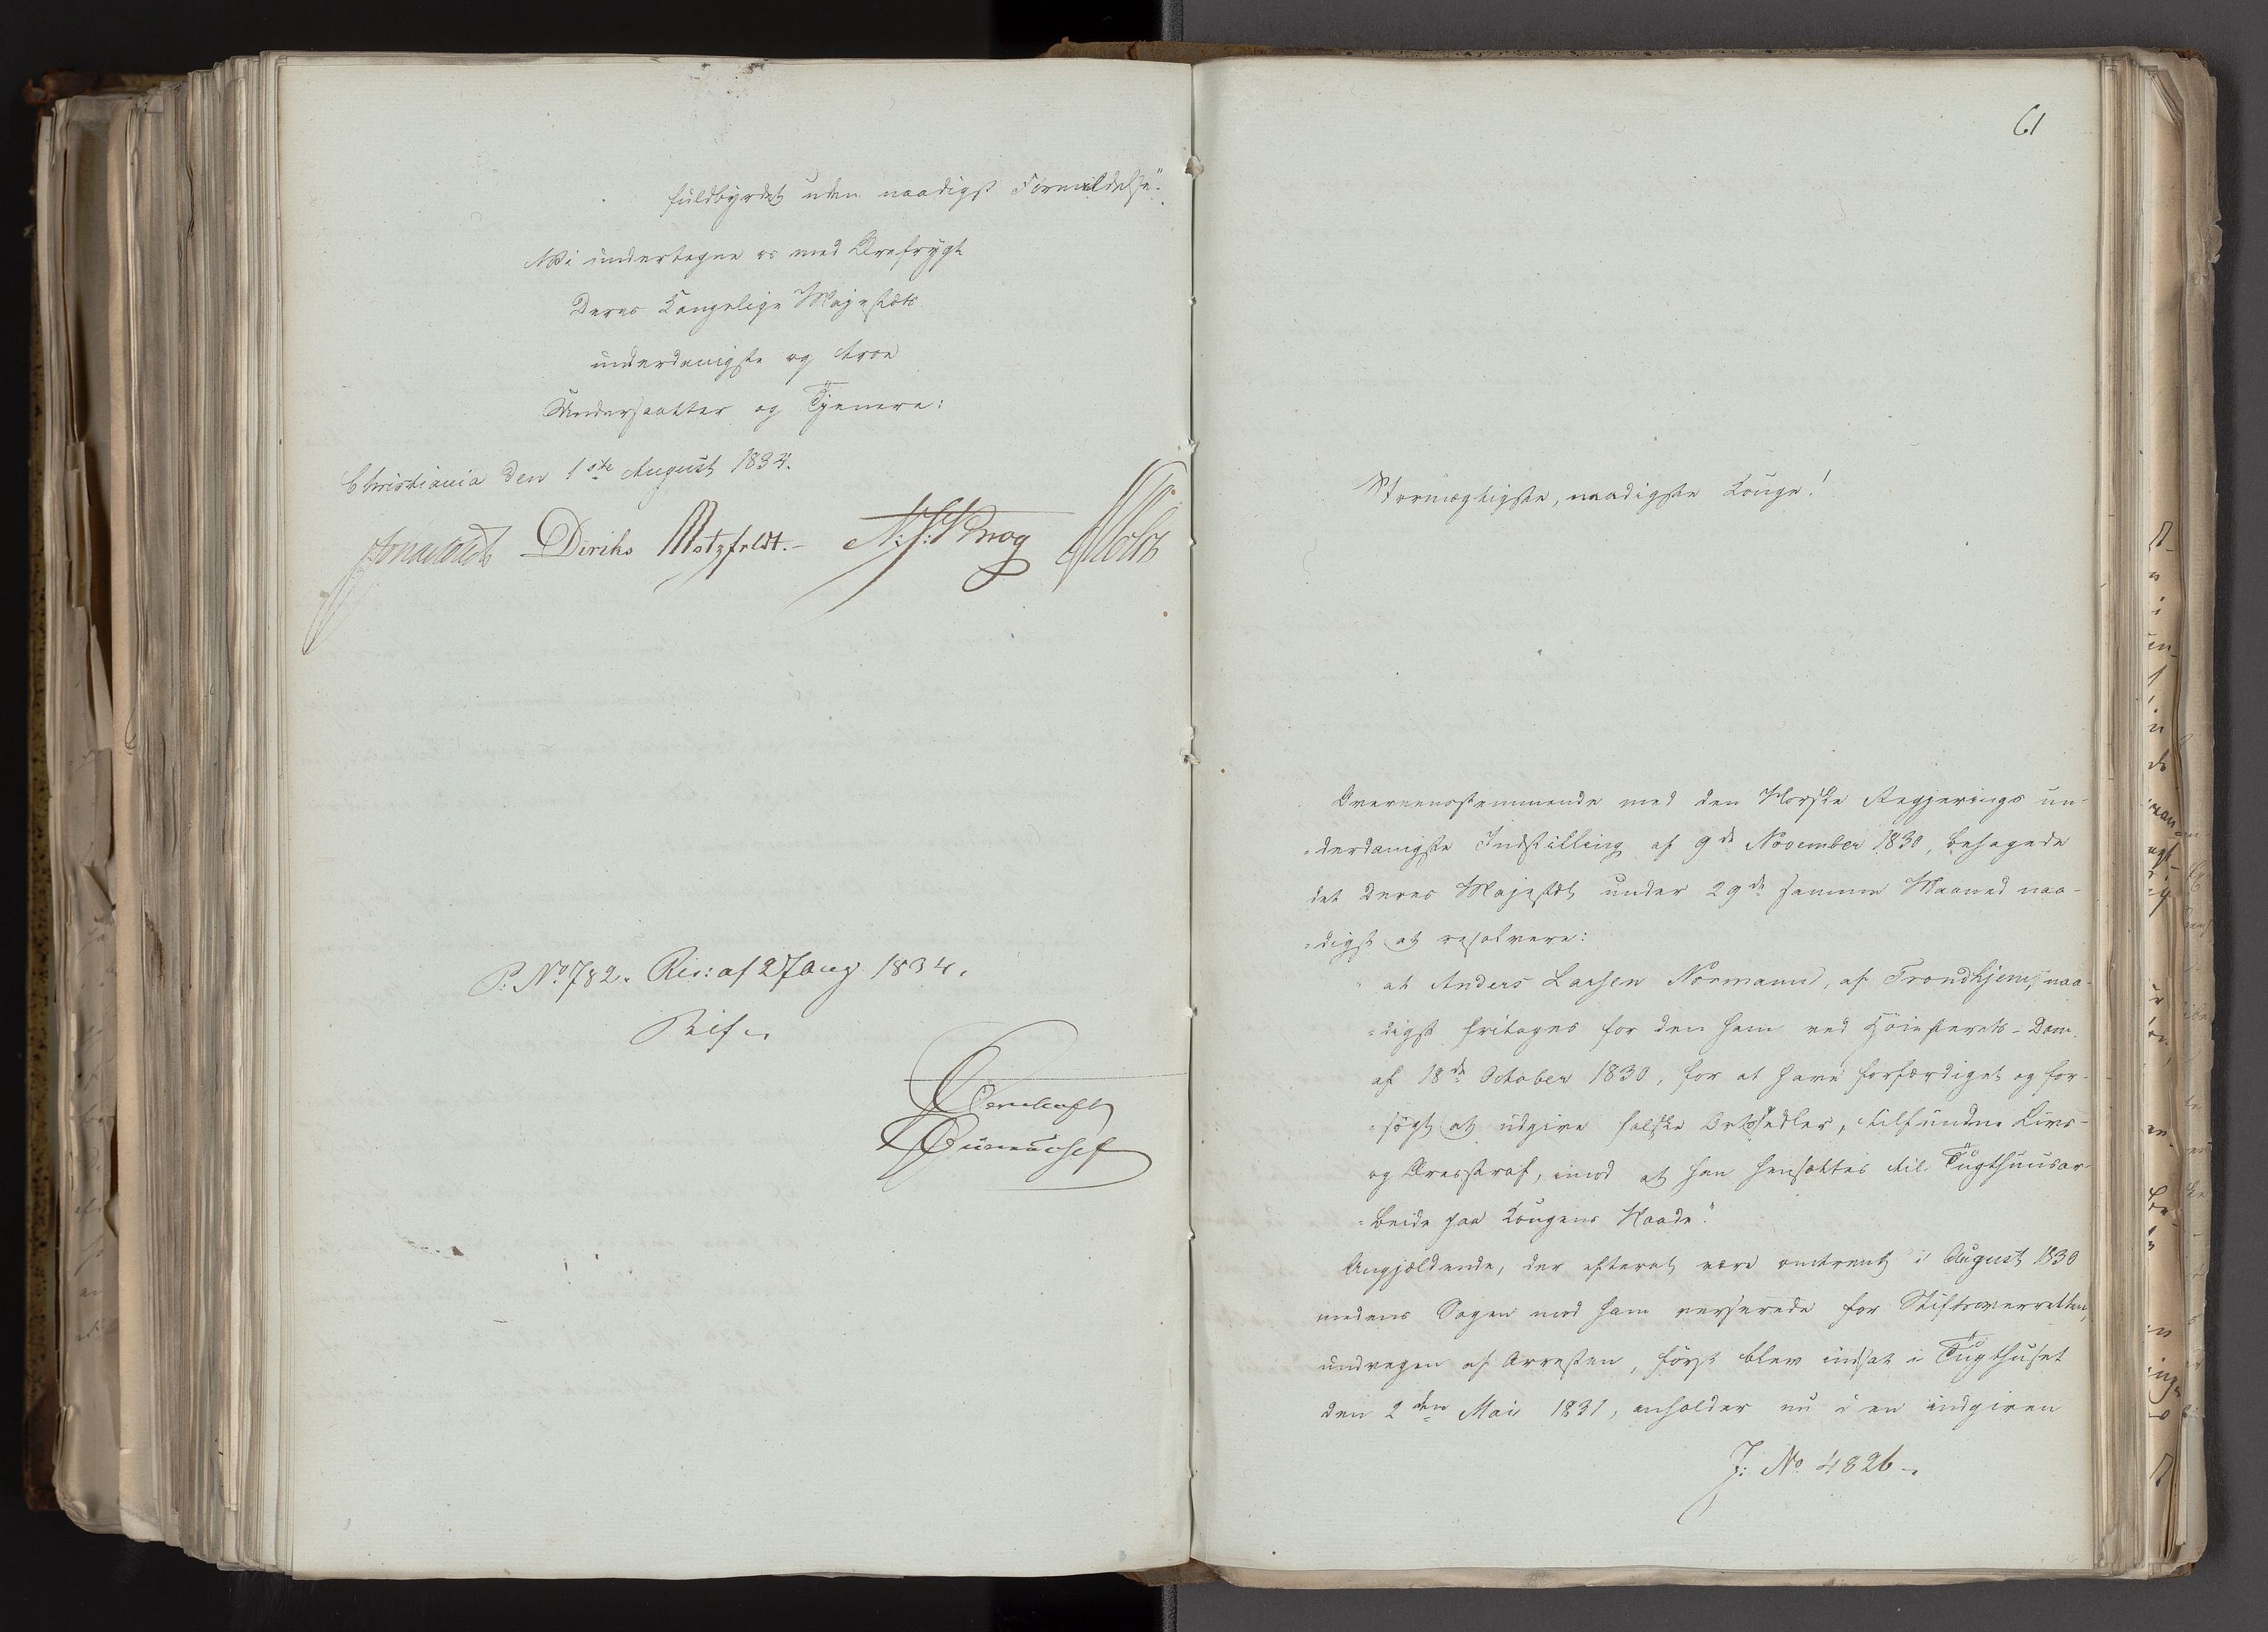 fuldbyrdet uden naadigst Formildelse".
Vi undertegne os med Ærefrygt
Deres Kongelige Majestæts
underdanigste og troe
Undersaatter og Tjenere:
Christiania den 1ste August 1834.
Diriks Motzfeldt.- N: J: Krog Holst
P: No 782. Res: af 27 Aug 1834.
61
Stormægtigste, naadigste Konge!
Overeensstemmende med den Norske Regjerings un-
-derdanigste Indstilling af 9de November 1830, behagede
det Deres Majestæt under 29de samme Maaned naa-
-digst at resolvere:
"at Anders Larsen Normand, af Trondhjem, naa-
-digst fritages for den ham ved Høiesterets-Dom
af 18de October 1830, for at have forfærdiget og for-
-søgt at udgive falske Ortsedler, tilfundne Livs-
og Æresstraf, imod at han hensættes til Tugthuusar-
-beide paa Kongens Naade."
Angjældende, der efterat være omtrent i August 1830
medens Sagen mod ham verserede for Stiftsoverretten,
undvegen af Arresten, først blev indsat i Tugthuset
den 2den Mai 1831, anholder nu i en indgiven
J: No 4826-.